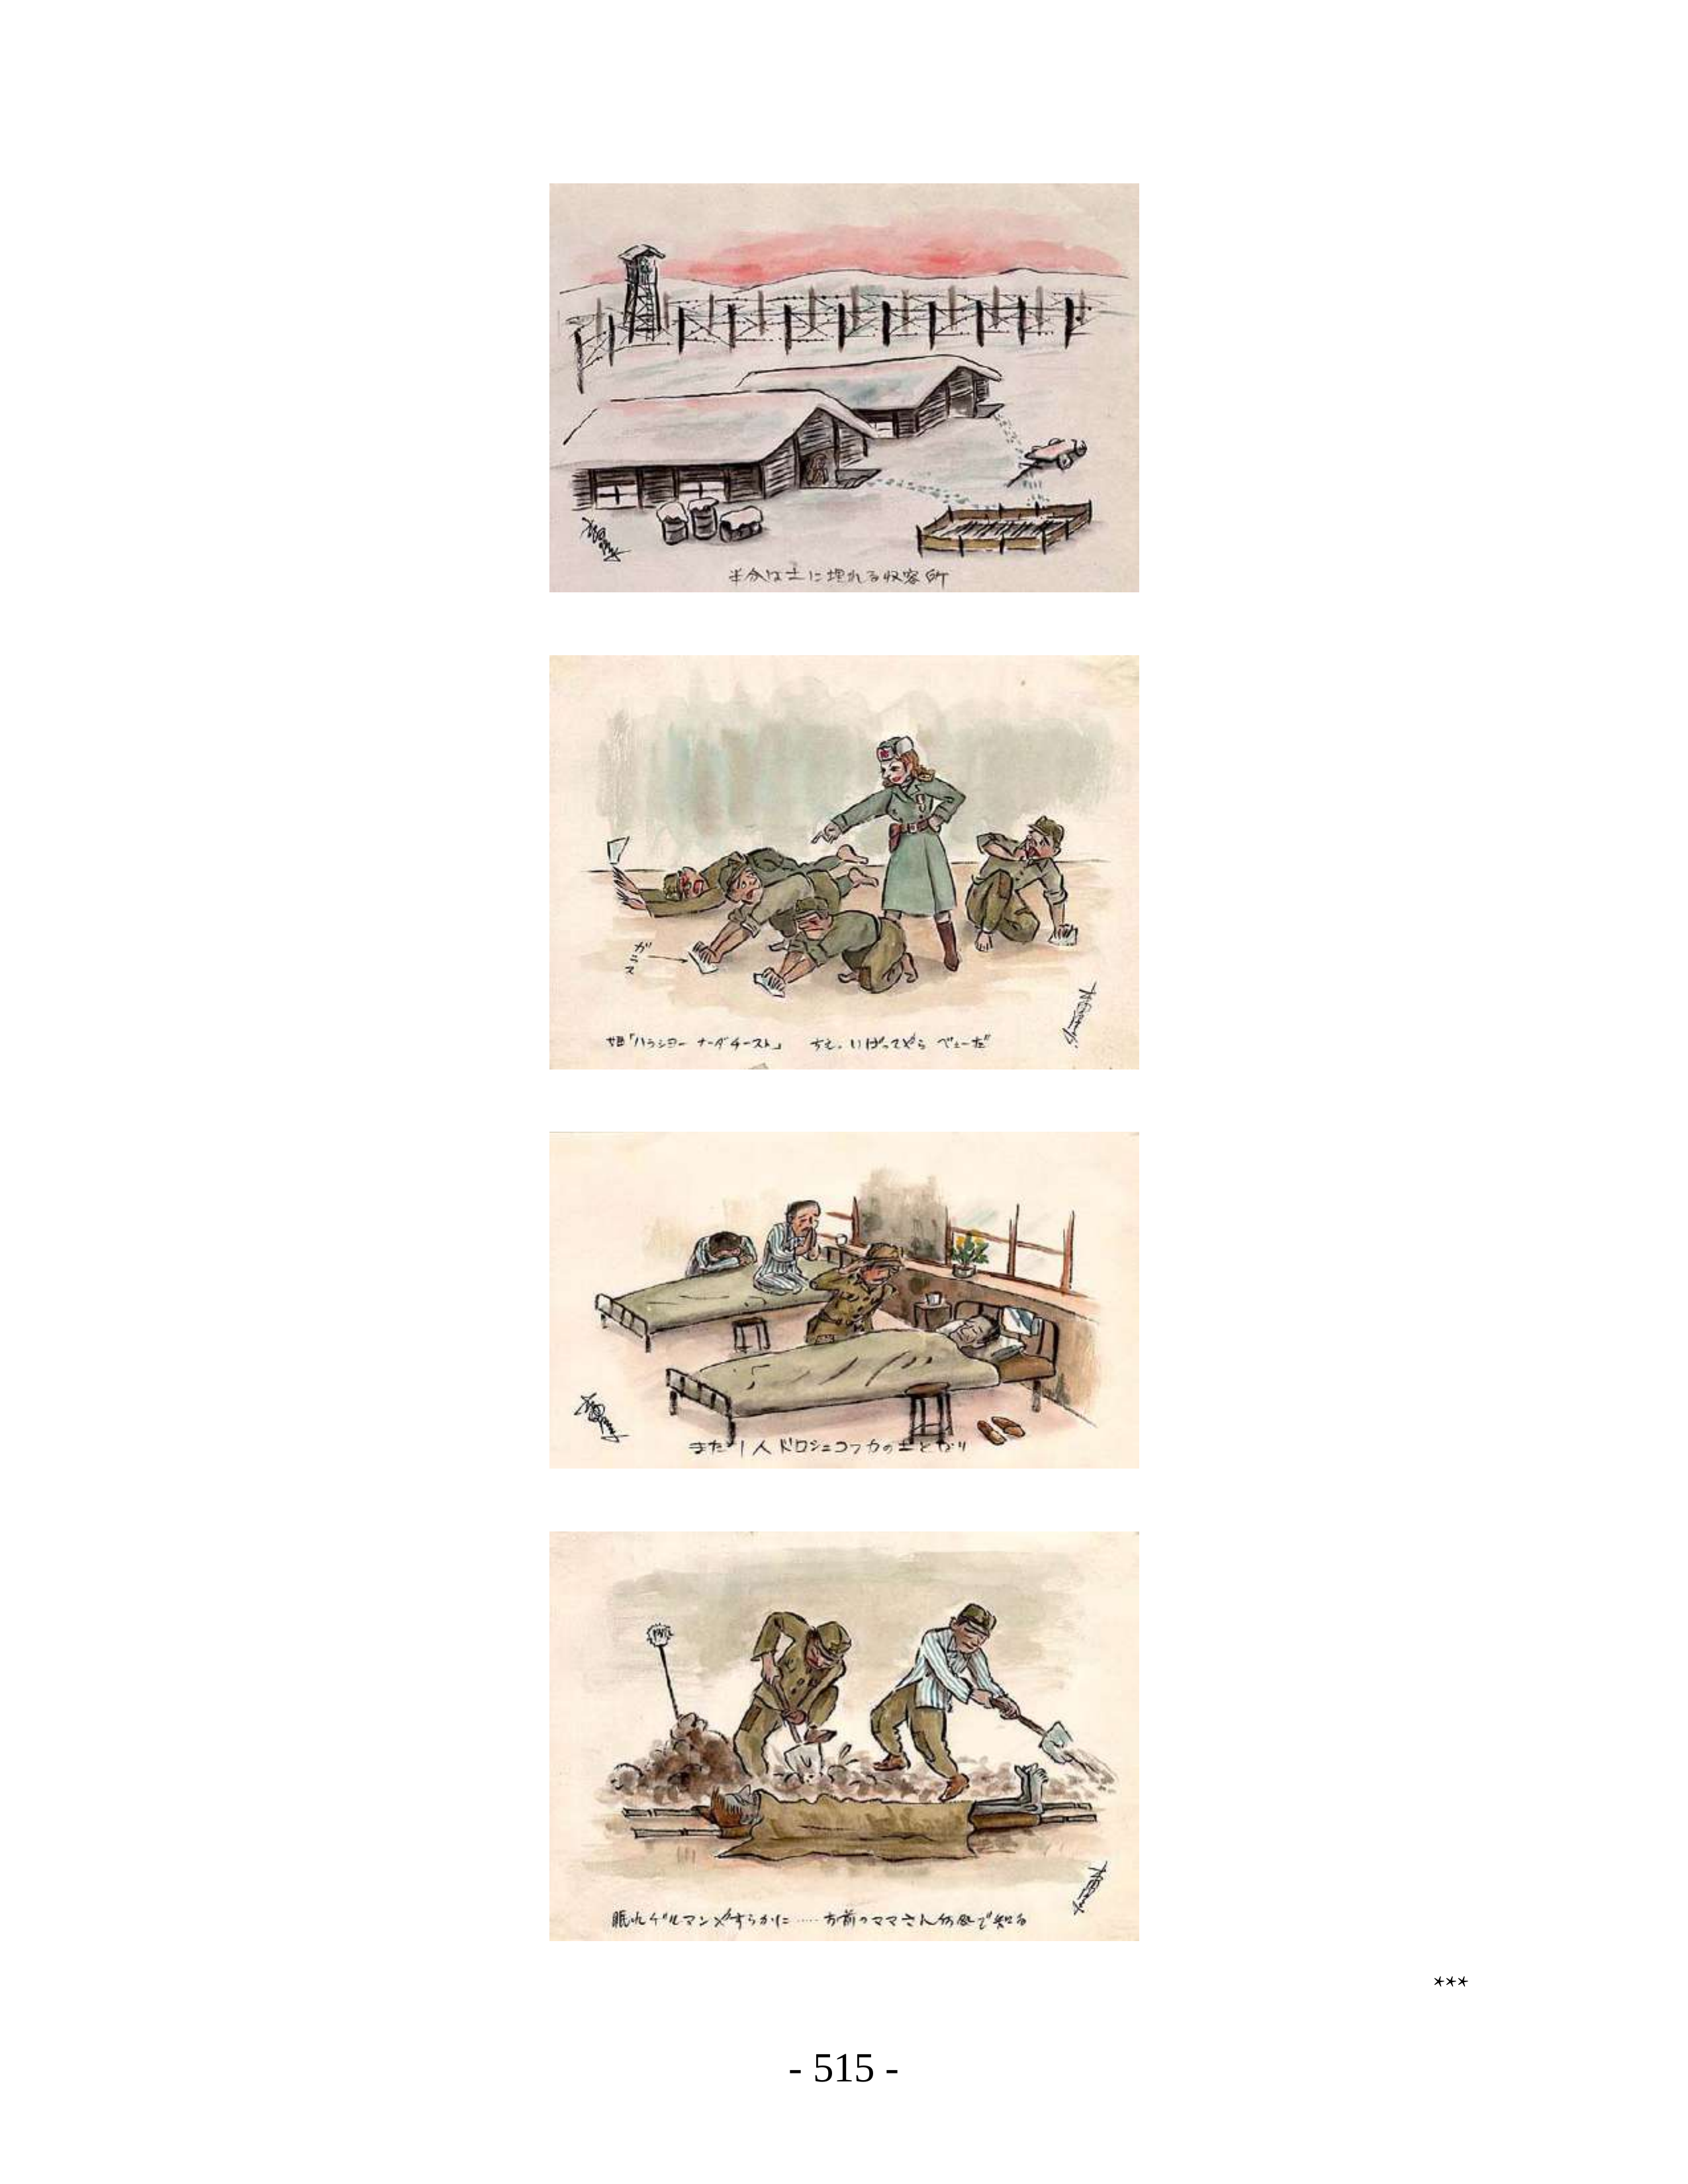 半分は土に埋れる収容所
ガラス
姫「ハラショー ナーダ チースト」 ちえっ いばってやら べえーだ
また1人ドロシェコフカの土となり
眠れゲルマンやすらかに……お前のママさん何処で知る
***
- 515 -